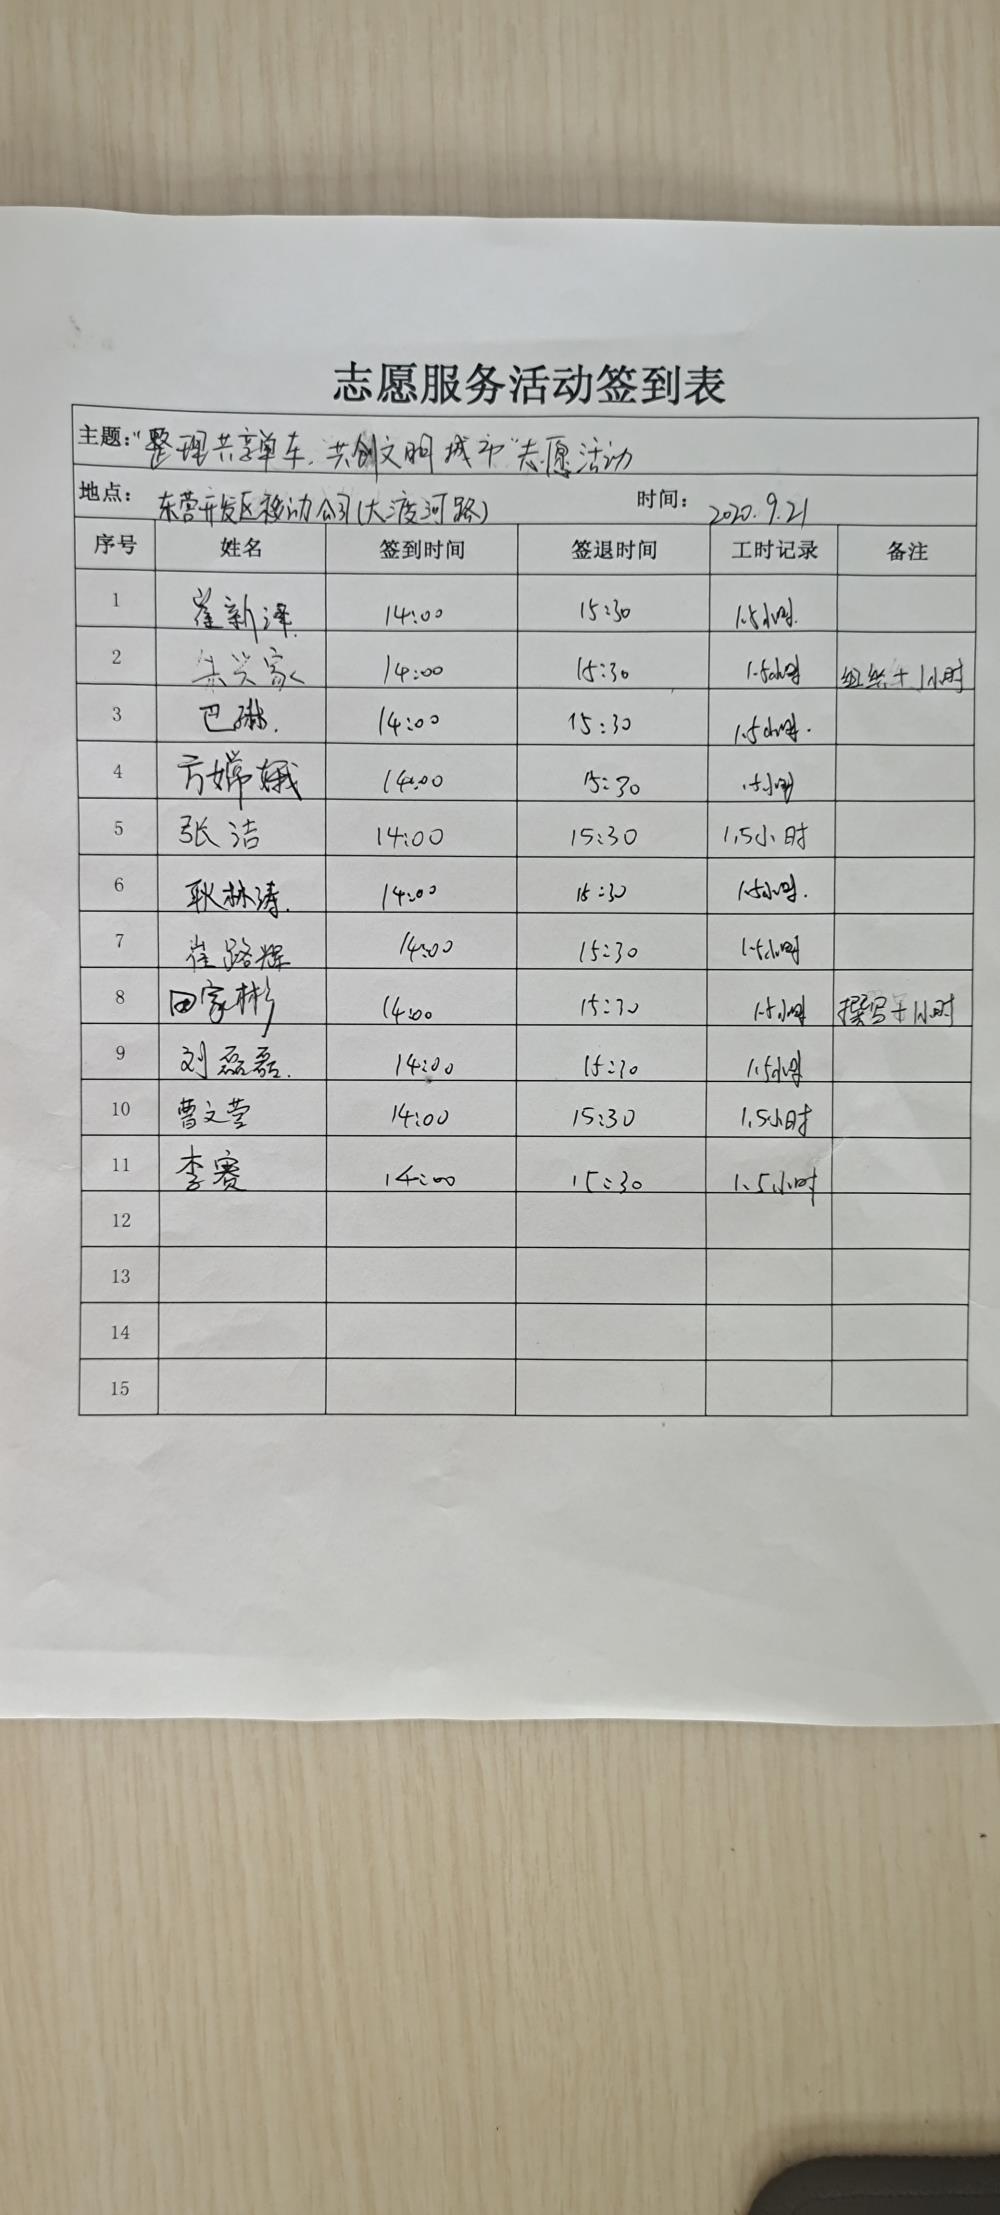 志愿服务活动签到表
主题："整理共享单车，共创文明城市"志愿活动
地点：东营开发区移动公司(大渡河路) 时间：2020.9.21
序号 姓名 签到时间 签退时间 工时记录 备注
1 崔新泽. 14:00 15:30 1.5小时.
2 朱兴家 14:00 15:30 1.5小时 组织+1小时
3 巴琳. 14:00 15:30 1.5小时.
4 方嫦娥 14:00 15:30 1.5小时
5 张洁 14:00 15:30 1.5小时
6 耿林涛. 14:00 15:30 1.5小时.
7 崔路辉 14:00 15:30 1.5小时
8 田家彬 14:00 15:30 1.5小时 撰写+1小时
9 刘磊磊. 14:00 15:30 1.5小时
10 曹文莹 14:00 15:30 1.5小时
11 李赛 14:00 15:30 1.5小时
12
13
14
15